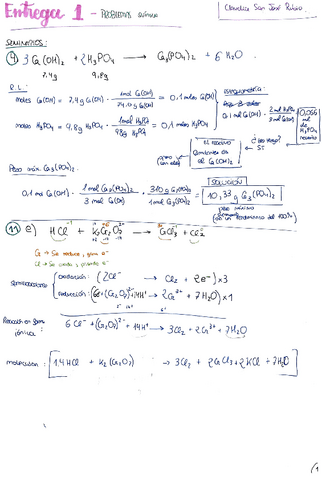 Entrega 1 - PROBLEMAS química
Claudia San José Rubio
SEMINARIOS:
9) 3Ca(OH)₂ + 2H₃PO₄ → Ca₃(PO₄)₂ + 6H₂O
7,4g 9,8g
R.L:
moles Ca(OH)₂ = 7,4g Ca(OH)₂ · 1mol Ca(OH)₂ / 74,10g Ca(OH)₂ = 0,1 moles Ca(OH)₂
moles H₃PO₄ = 9,8g H₃PO₄ · 1mol H₃PO₄ / 98g H₃PO₄ = 0,1 moles H₃PO₄
estequiometría:
0,1 mol Ca(OH)₂ · 2mol H₃PO₄ / 3mol Ca(OH)₂
0,066 mol de H₃PO₄
SÍ
el reactivo limitante es el Ca(OH)₂
Peso máx. Ca₃(PO₄)₂:
0,1 mol Ca(OH)₂ · 1mol Ca₃(PO₄)₂ / 3mol Ca(OH)₂ · 310g Ca₃(PO₄)₂ / 1mol Ca₃(PO₄)₂ = 10,33g Ca₃(PO₄)₂
SOLUCIÓN
peso máximo
con un rendimiento del 100%
11) e) HCl + K₂Cr₂O₇ → 2CrCl₃ + Cl₂
Cr → Se reduce, gana e⁻
Cl → Se oxida, pierde e⁻
semirreacciones
oxidación: (2Cl⁻ → Cl₂ + 2e⁻) ×3
reducción: (6e⁻ + (Cr₂O₇)²⁻ + 14H⁺ → 2Cr³⁺ + 7H₂O) ×1
Reacción en forma iónica:
6Cl⁻ + (Cr₂O₇)²⁻ + 14H⁺ → 3Cl₂ + 2Cr³⁺ + 7H₂O
molecular:
14HCl + K₂(Cr₂O₇) → 3Cl₂ + 2CrCl₃ + 2KCl + 7H₂O